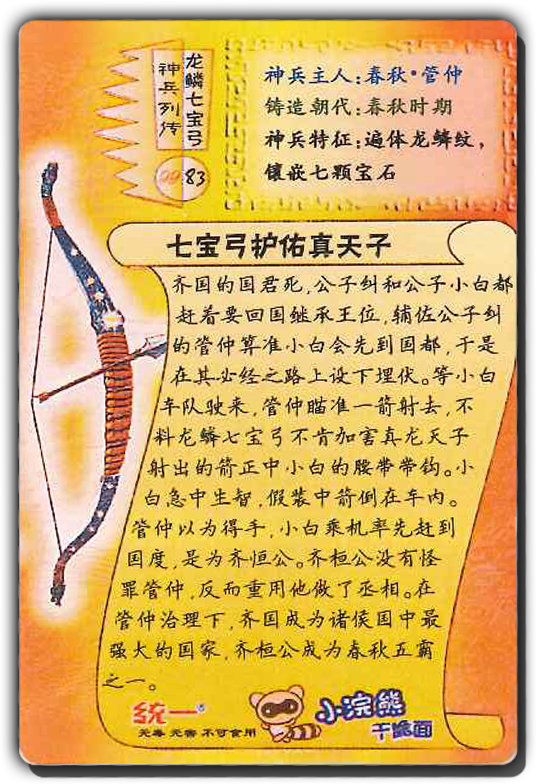 龙鳞七宝弓
神兵列传
83
神兵主人:春秋•管仲
铸造朝代:春秋时期
神兵特征:遍体龙鳞纹,
镶嵌七颗宝石
七宝弓护佑真天子
齐国的国君死,公子纠和公子小白都
赶着要回国继承王位,辅佐公子纠
的管仲算准小白会先到国都,于是
在其必经之路上设下埋伏。等小白
车队驶来,管仲瞄准一箭射去,不
料龙鳞七宝弓不肯加害真龙天子
射出的箭正中小白的腰带带钩。小
白急中生智,假装中箭倒在车内。
管仲以为得手,小白乘机率先赶到
国度,是为齐恒公。齐桓公没有怪
罪管仲,反而重用他做了丞相。在
管仲治理下,齐国成为诸侯国中最
强大的国家,齐桓公成为春秋五霸
之一。
统一®
小浣熊
干脆面
无毒 无害 不可食用